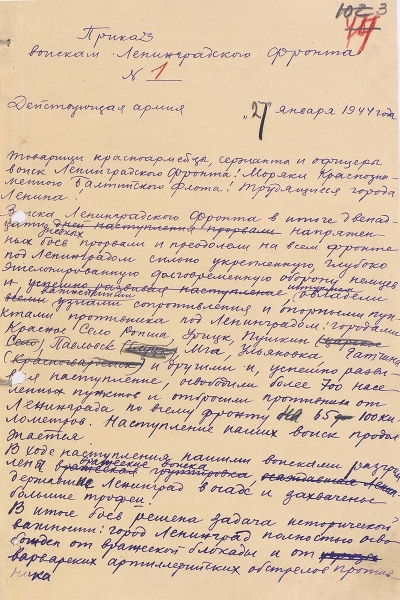 102 3
44
Приказ
войскам Ленинградского Фронта
№ 1
Действующая армия „27" января 1944 года
Товарищи красноармейцы, сержанты и офицеры
войск Ленинградского Фронта! Моряки Краснозна-
менного Балтийского Флота! Трудящиеся города
Ленина!
Войска Ленинградского Фронта в итоге двенад-
цати дней наступления прорвали напряжен-
дневных
ных боев прорвали и преодолели на всем фронте
под Ленинградом сильно укрепленную, глубоко
эшелонированную долговременную оборону немцев
и успешно развивая наступление, овладели
важнейшими
всеми узлами сопротивления и опорными пунк-
ктами противника под Ленинградом: городами
Красное Село, Ропша, Урицк, Пушкин (Царское
Село), Павловск Мга, Ульяновка, Гатчина
(Красногвардейск) и другими и, успешно разви-
вая наступление, освободили более 700 насе-
ленных пунктов и отбросили противника от
Ленинграда по всему фронту на 65-100 кило-
лометров. Наступление наших войск продол
жается.
В ходе наступления нашими войсками разгром
вражеские войска
лена вражеская группировка осаждавшие Ленин
державшие Ленинград в осаде и захвачены
большие трофеи.
В итоге боев решена задача исторической
важности: город Ленинград полностью осво-
божден от вражеской блокады и от
варварских артиллерийских обстрелов против-
ника